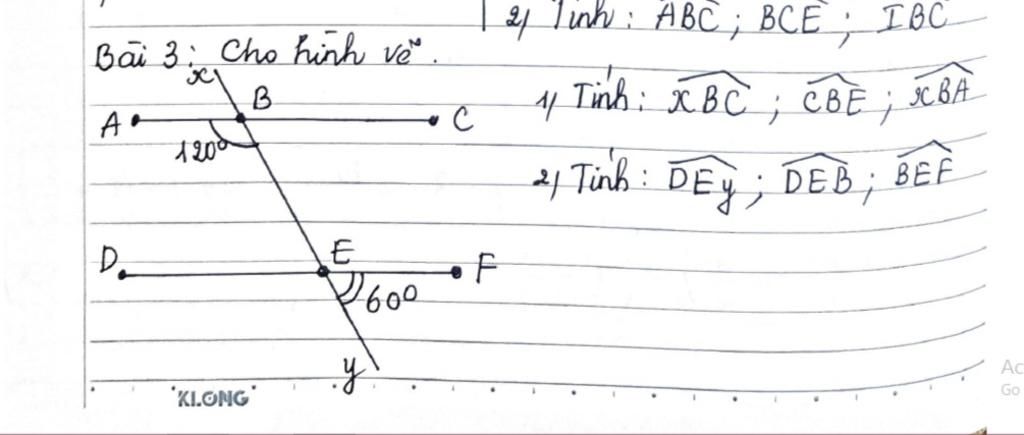 2) Tính : ABC ; BCE ; IBC
Bài 3 : Cho hình vẽ .
x
A B C
120°
1) Tính : xBC ; CBE ; xBA
2) Tính : DEy ; DEB ; BEF
D E F
60°
y
KLONG
Ac
Go